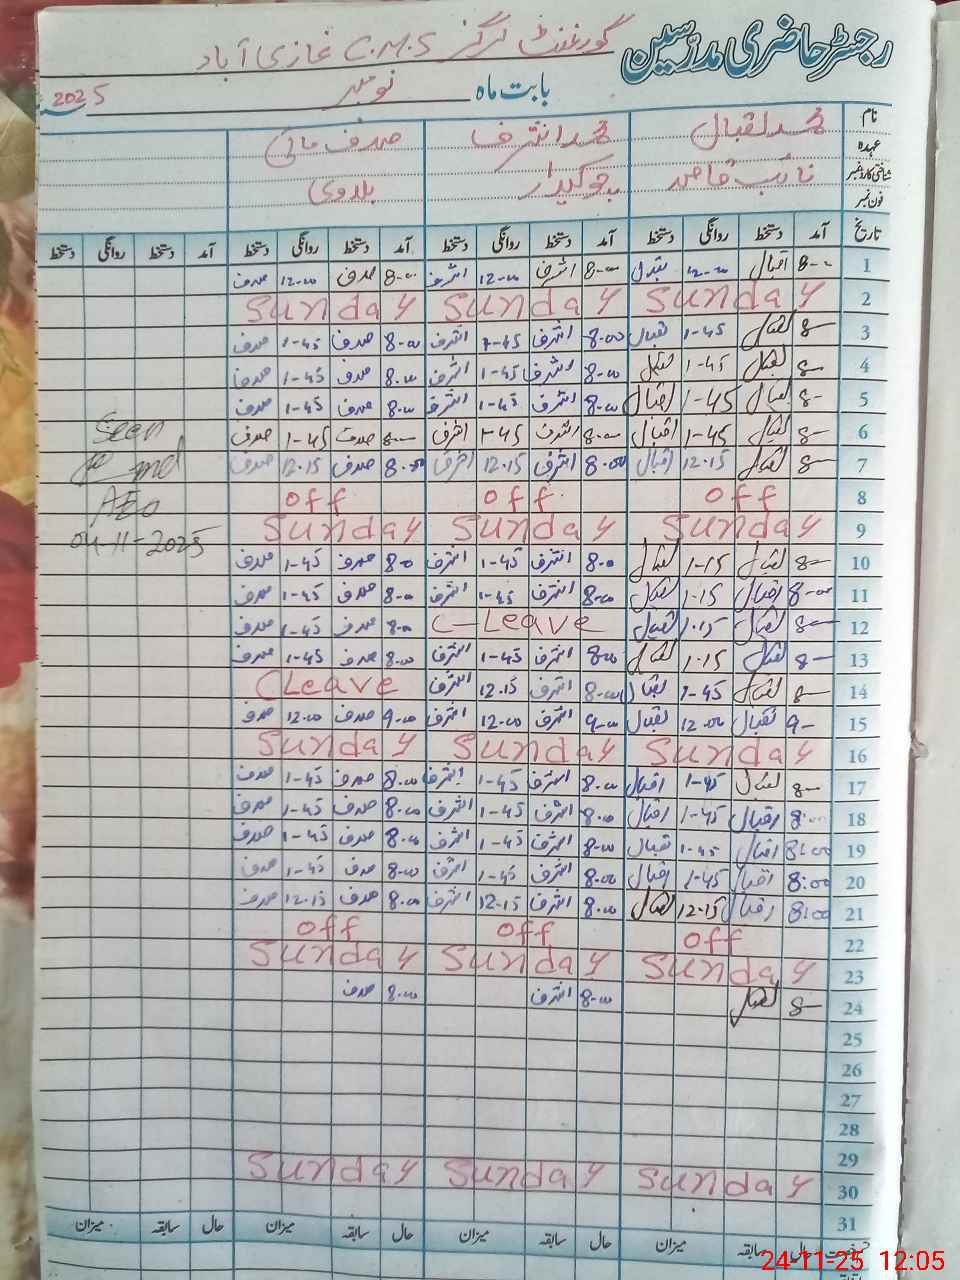 رجسٹر حاضری مدرسین
گورنمنٹ گرلز C.M.S غازی آباد
بابت ماہ نومبر 2025
نام محمد اقبال محمد اشرف صدف مائی
عہدہ نائب قاصد چوکیدار بلدوی
شناختی کارڈ نمبر
فون نمبر
تاریخ آمد دستخط روانگی دستخط آمد دستخط روانگی دستخط آمد دستخط روانگی دستخط آمد دستخط روانگی دستخط
1 8-00 اقبال 12-00 اقبال 8-00 اشرف 12-00 اشرف 8-00 صدف 12-00 صدف
2 Sunday Sunday Sunday
3 8- اقبال 1-45 اقبال 8-00 اشرف 1-45 اشرف 8-00 صدف 1-45 صدف
4 8- اقبال 1-45 اقبال 8-00 اشرف 1-45 اشرف 8-00 صدف 1-45 صدف
5 8- اقبال 1-45 اقبال 8-00 اشرف 1-45 اشرف 8-00 صدف 1-45 صدف
6 8- اقبال 1-45 اقبال 8-00 اشرف 1-45 اشرف 8-00 صدف 1-45 صدف Seen
7 8- اقبال 12.15 اقبال 8.00 اشرف 12.15 اشرف 8.00 صدف 12.15 صدف
8 off off off AEO
9 Sunday Sunday Sunday 04-11-2025
10 8- اقبال 1-15 اقبال 8-0 اشرف 1-45 اشرف 8-0 صدف 1-45 صدف
11 8-00 اقبال 1.15 اقبال 8-00 اشرف 1-45 اشرف 8-00 صدف 1-45 صدف
12 8- اقبال 1.15 اقبال C-Leave 8-00 صدف 1-45 صدف
13 8- اقبال 1.15 اقبال 8-00 اشرف 1-45 اشرف 8-00 صدف 1-45 صدف
14 8- اقبال 1-45 اقبال 8-00 اشرف 12.15 اشرف CLeave
15 9- اقبال 12.00 اقبال 9-00 اشرف 12.00 اشرف 9-00 صدف 12.00 صدف
16 Sunday Sunday Sunday
17 8- اقبال 1-45 اقبال 8.00 اشرف 1-45 اشرف 8.00 صدف 1-45 صدف
18 8:00 اقبال 1-45 اقبال 8.00 اشرف 1-45 اشرف 8.00 صدف 1-45 صدف
19 8:00 اقبال 1-45 اقبال 8-00 اشرف 1-45 اشرف 8.00 صدف 1-45 صدف
20 8:00 اقبال 1-45 اقبال 8.00 اشرف 1-45 اشرف 8-00 صدف 1-45 صدف
21 8:00 اقبال 12.15 اقبال 8.00 اشرف 12.15 اشرف 8.00 صدف 12.15 صدف
22 off off off
23 Sunday Sunday Sunday
24 8- اقبال 8-00 اشرف 8-00 صدف
25
26
27
28
29
30 Sunday Sunday Sunday
31
حال سابقہ میزان حال سابقہ میزان حال سابقہ میزان حال سابقہ میزان
24-11-25 12:05